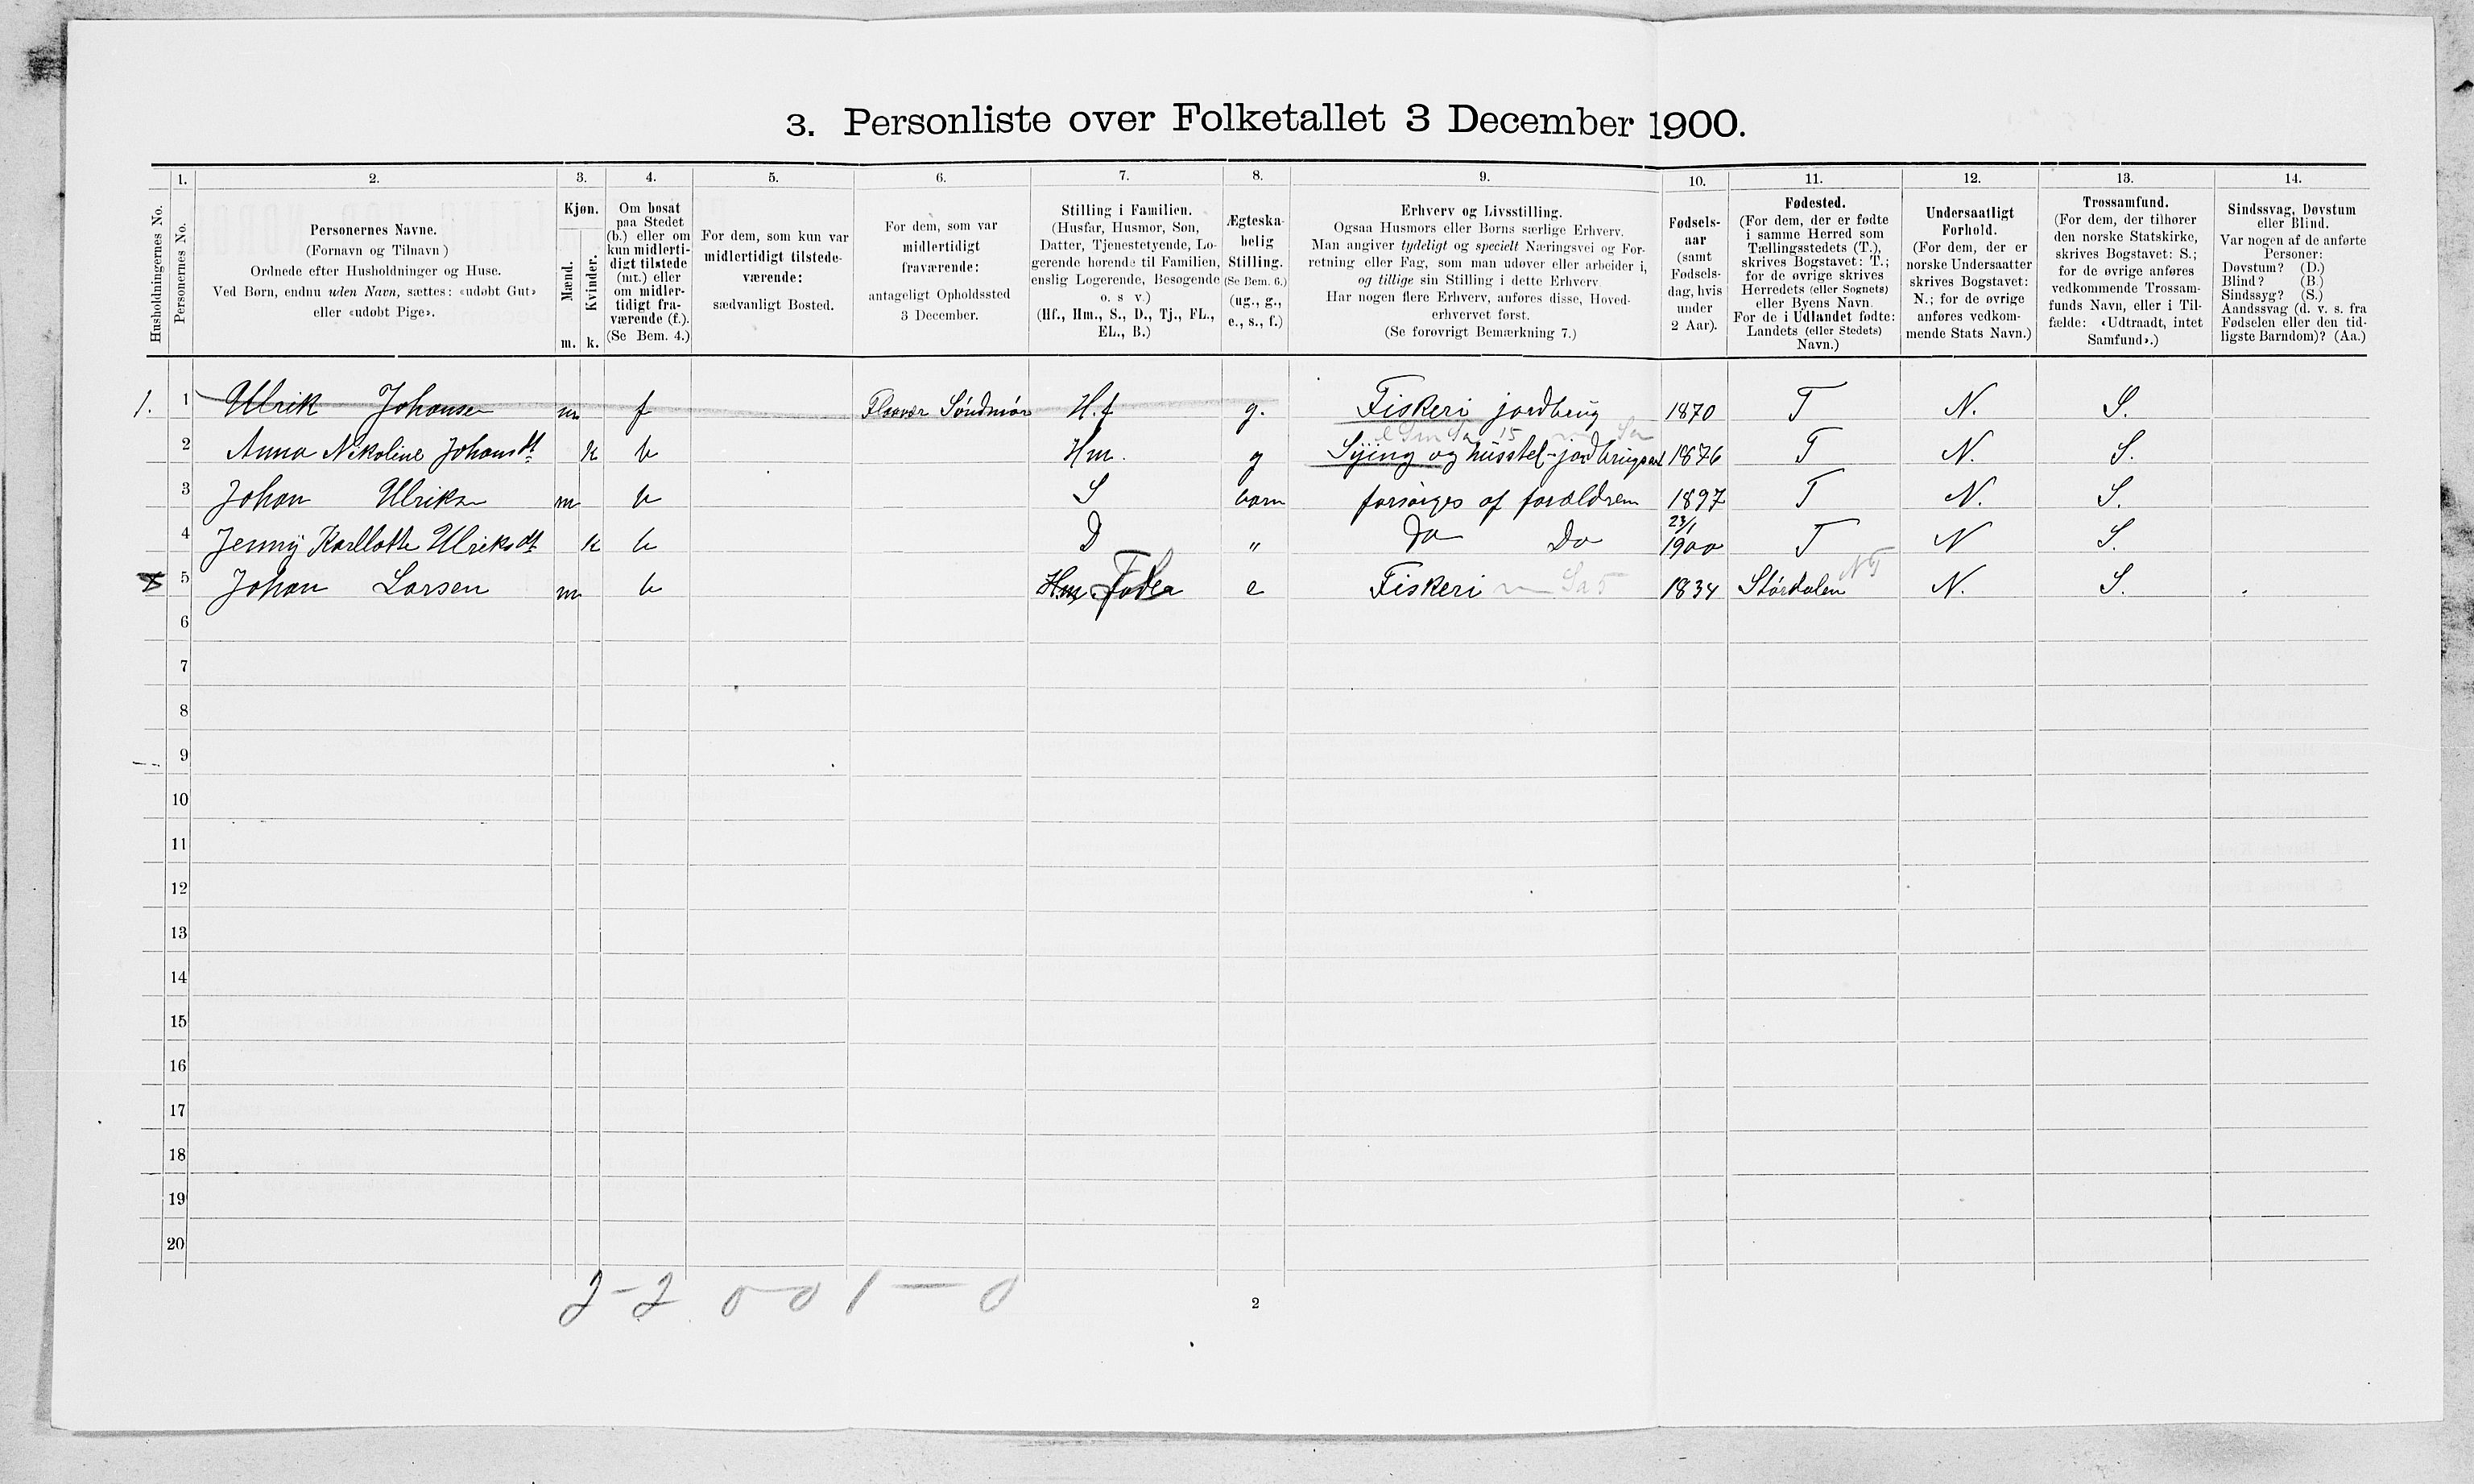 3. Personliste over Folketallet 3 December 1900.
1. 2. 3. 4. 5. 6. 7. 8. 9. 10. 11. 12. 13. 14.
Husholdningernes No.
Personernes No.
Personernes Navne.
(Fornavn og Tilnavn)
Ordnede efter Husholdninger og Huse.
Ved Børn, endnu uden Navn, sættes: «udøbt Gut»
eller «udøbt Pige».
Kjøn.
Mænd.
Kvinder.
m. k.
Om bosat
paa Stedet
(b.) eller om
kun midlerti-
digt tilstede
(mt.) eller
om midler-
tidigt fra-
værende (f.).
(Se Bem. 4.)
For dem, som kun var
midlertidigt tilstede-
værende:
sædvanligt Bosted.
For dem, som var
midlertidigt
fraværende:
antageligt Opholdssted
3 December.
Stilling i Familien.
(Husfar, Husmor, Søn,
Datter, Tjenestetyende, Lo-
gerende hørende til Familien,
enslig Logerende, Besøgende
o. s v.)
(Hf., Hm., S., D., Tj., FL.,
EL., B.)
Ægteska-
belig
Stilling.
(Se Bem. 6.)
(ug., g.,
e., s., f.)
Erhverv og Livsstilling.
Ogsaa Husmors eller Børns særlige Erhverv.
Man angiver tydeligt og specielt Næringsvei og For-
retning eller Fag, som man udøver eller arbeider i,
og tillige sin Stilling i dette Erhverv.
Har nogen flere Erhverv, anføres disse, Hoved-
erhvervet først.
(Se forøvrigt Bemærkning 7.)
Fødsels-
aar
(samt
Fødsels-
dag, hvis
under
2 Aar).
Fødested.
(For dem, der er fødte
i samme Herred som
Tællingsstedets (T.),
skrives Bogstavet: T.;
for de øvrige skrives
Herredets (eller Sognets)
eller Byens Navn.
For de i Udlandet fødte:
Landets (eller Stedets)
Navn.)
Undersaatligt
Forhold.
(For dem, der er
norske Undersaatter
skrives Bogstavet:
N.; for de øvrige
anføres vedkom-
mende Stats Navn.)
Trossamfund.
(For dem, der tilhører
den norske Statskirke,
skrives Bogstavet: S.;
for de øvrige anføres
vedkommende Trossam-
funds Navn, eller i Til-
fælde: «Udtraadt, intet
Samfund».)
Sindssvag, Døvstum
eller Blind.
Var nogen af de anførte
Personer:
Døvstum? (D.)
Blind? (B.)
Sindssyg? (S.)
Aandssvag (d. v. s. fra
Fødselen eller den tid-
ligste Barndom)? (Aa.)
1. 1 Ulrik Johansen m f Flaavær Søndmør H.f g. Fiskeri jordbrug 1870 T N. S.
2 Anna Nikoline Johansdt k b Hm. g Sying og husstel-jordbrugsar 1876 T N. S.
3 Johan Ulriksen m b S barn forsörges af forældrene 1897 T N. S.
4 Jenny Karllotte Ulriksdt k b D " Do Do 23/1 1900 T N S.
5 Johan Larsen m b e Fiskeri 1834 Stördalen NT N. S.
6
7
8
9
10
11
12
13
14
15
16
17
18
19
20
2-2 0 0 1 - 0
2